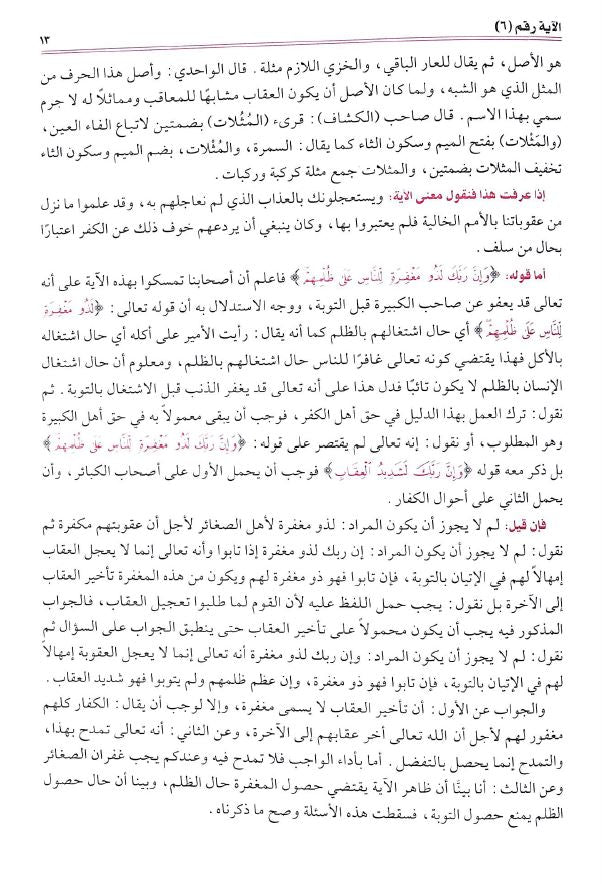 الآية رقم (٦)
١٣
هو الأصل، ثم يقال للعار الباقي، والخزي اللازم مثلة. قال الواحدي: وأصل هذا الحرف من
المثل الذي هو الشبه، ولما كان الأصل أن يكون العقاب مشابهًا للمعاقب ومماثلاً له لا جرم
سمي بهذا الاسم. قال صاحب (الكشاف): قرىء (المُثُلات) بضمتين لاتباع الفاء العين،
(والمَثْلات) بفتح الميم وسكون الثاء كما يقال: السمرة، والمُثْلات، بضم الميم وسكون الثاء
تخفيف المثلات بضمتين، والمثلات جمع مثلة كركبة وركبات.
إذا عرفت هذا فنقول معنى الآية: ويستعجلونك بالعذاب الذي لم نعاجلهم به، وقد علموا ما نزل
من عقوباتنا بالأمم الخالية فلم يعتبروا بها، وكان ينبغي أن يردعهم خوف ذلك عن الكفر اعتبارًا
بحال من سلف.
أما قوله: ﴿وَإِنَّ رَبَّكَ لَذُو مَغْفِرَةٍ لِّلنَّاسِ عَلَىٰ ظُلْمِهِمْ﴾ فاعلم أن أصحابنا تمسكوا بهذه الآية على أنه
تعالى قد يعفو عن صاحب الكبيرة قبل التوبة، ووجه الاستدلال به أن قوله تعالى: ﴿لَذُو مَغْفِرَةٍ
لِّلنَّاسِ عَلَىٰ ظُلْمِهِمْ﴾ أي حال اشتغالهم بالظلم كما أنه يقال: رأيت الأمير على أكله أي حال اشتغاله
بالأكل فهذا يقتضي كونه تعالى غافرًا للناس حال اشتغالهم بالظلم، ومعلوم أن حال اشتغال
الإنسان بالظلم لا يكون تائبًا فدل هذا على أنه تعالى قد يغفر الذنب قبل الاشتغال بالتوبة. ثم
نقول: ترك العمل بهذا الدليل في حق أهل الكفر، فوجب أن يبقى معمولاً به في حق أهل الكبيرة
وهو المطلوب، أو نقول: إنه تعالى لم يقتصر على قوله: ﴿وَإِنَّ رَبَّكَ لَذُو مَغْفِرَةٍ لِّلنَّاسِ عَلَىٰ ظُلْمِهِمْ﴾
بل ذكر معه قوله ﴿وَإِنَّ رَبَّكَ لَشَدِيدُ الْعِقَابِ﴾ فوجب أن يحمل الأول على أصحاب الكبائر، وأن
يحمل الثاني على أحوال الكفار.
فإن قيل: لم لا يجوز أن يكون المراد: لذو مغفرة لأهل الصغائر لأجل أن عقوبتهم مكفرة ثم
نقول: لم لا يجوز أن يكون المراد: إن ربك لذو مغفرة إذا تابوا وأنه تعالى إنما لا يعجل العقاب
إمهالاً لهم في الإتيان بالتوبة، فإن تابوا فهو ذو مغفرة لهم ويكون من هذه المغفرة تأخير العقاب
إلى الآخرة بل نقول: يجب حمل اللفظ عليه لأن القوم لما طلبوا تعجيل العقاب، فالجواب
المذكور فيه يجب أن يكون محمولاً على تأخير العقاب حتى ينطبق الجواب على السؤال ثم
نقول: لم لا يجوز أن يكون المراد: وإن ربك لذو مغفرة أنه تعالى إنما لا يعجل العقوبة إمهالاً
لهم في الإتيان بالتوبة، فإن تابوا فهو ذو مغفرة، وإن عظم ظلمهم ولم يتوبوا فهو شديد العقاب.
والجواب عن الأول: أن تأخير العقاب لا يسمى مغفرة، وإلا لوجب أن يقال: الكفار كلهم
مغفور لهم لأجل أن الله تعالى أخر عقابهم إلى الآخرة، وعن الثاني: أنه تعالى تمدح بهذا،
والتمدح إنما يحصل بالتفضل. أما بأداء الواجب فلا تمدح فيه وعندكم يجب غفران الصغائر
وعن الثالث: أنا بينَّا أن ظاهر الآية يقتضي حصول المغفرة حال الظلم، وبينا أن حال حصول
الظلم يمنع حصول التوبة، فسقطت هذه الأسئلة وصح ما ذكرناه.